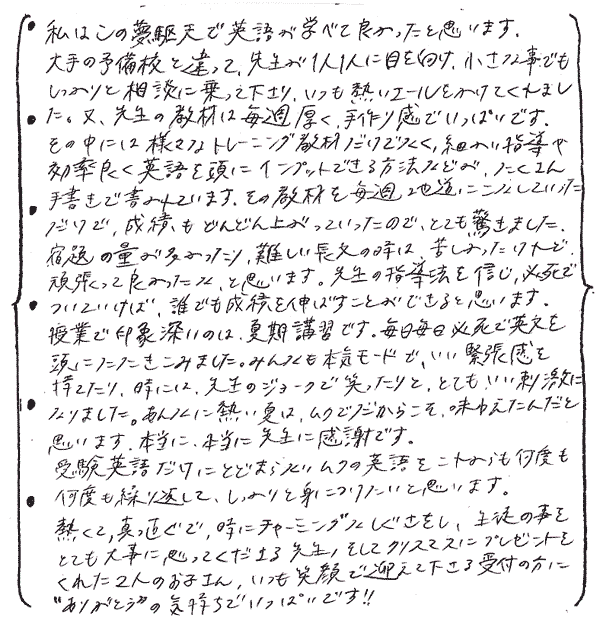 私はこの夢駆天で英語が学べて良かったと思います。
大手の予備校と違って、先生が1人1人に目を向け、小さな事でも
しっかりと相談に乗って下さり、いつも熱いエールをかけてくれまし
た。又、先生の教材は毎週厚く、手作り感でいっぱいです。
その中には様々なトレーニング教材だけでなく、細かい指導や
効率良く英語を頭にインプットできる方法などが、たくさん
手書きで書かれています。その教材を毎週地道にこなしていった
だけで、成績もどんどん上がっていったので、とても驚きました。
宿題の量が多かったり、難しい長文の時は苦しかったけれど、
頑張って良かったな、と思います。先生の指導法を信じ、必死で
ついていけば、誰でも成績を伸ばすことができると思います。
授業で印象深いのは、夏期講習です。毎日毎日必死で英文を
頭にたたきこみました。みんなも本気モードで、いい緊張感を
持てたり、時には、先生のジョークで笑ったりと、とてもいい刺激に
なりました。あんなに熱い夏は、ムクでだからこそ、味わえたんだと
思います。本当に、本当に先生に感謝です。
受験英語だけにとどまらないムクの英語をこれからも何度も
何度も繰り返して、しっかりと身につけたいと思います。
熱くて、真っ直ぐで、時にチャーミングなしぐさをし、生徒の事を
とても大事に思ってくださる先生、そしてクリスマスにプレゼントを
くれた2人のお子さん、いつも笑顔で迎えて下さる受付の方に
"ありがとう"の気持ちでいっぱいです!!